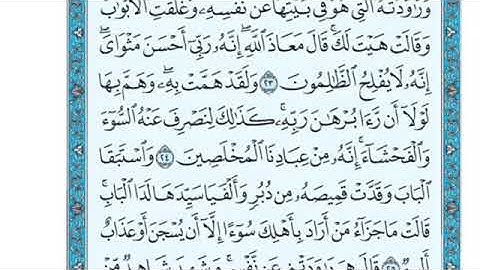 وَرَٰوَدَتْهُ ٱلَّتِى هُوَ فِى بَيْتِهَا عَن نَّفْسِهِۦ وَغَلَّقَتِ ٱلْأَبْوَٰبَ
وَقَالَتْ هَيْتَ لَكَ ۚ قَالَ مَعَاذَ ٱللَّهِ ۖ إِنَّهُۥ رَبِّىٓ أَحْسَنَ مَثْوَاىَ ۖ
إِنَّهُۥ لَا يُفْلِحُ ٱلظَّٰلِمُونَ ٢٣ وَلَقَدْ هَمَّتْ بِهِۦ ۖ وَهَمَّ بِهَا
لَوْلَآ أَن رَّءَا بُرْهَٰنَ رَبِّهِۦ ۚ كَذَٰلِكَ لِنَصْرِفَ عَنْهُ ٱلسُّوٓءَ
وَٱلْفَحْشَآءَ ۚ إِنَّهُۥ مِنْ عِبَادِنَا ٱلْمُخْلَصِينَ ٢٤ وَٱسْتَبَقَا
ٱلْبَابَ وَقَدَّتْ قَمِيصَهُۥ مِن دُبُرٍ وَأَلْفَيَا سَيِّدَهَا لَدَا ٱلْبَابِ ۚ
قَالَتْ مَا جَزَآءُ مَنْ أَرَادَ بِأَهْلِكَ سُوٓءًا إِلَّآ أَن يُسْجَنَ أَوْ عَذَابٌ
أَلِيمٌ ٢٥ قَالَ هِىَ رَٰوَدَتْنِى عَن نَّفْسِى ۚ وَشَهِدَ شَاهِدٌ مِّنْ